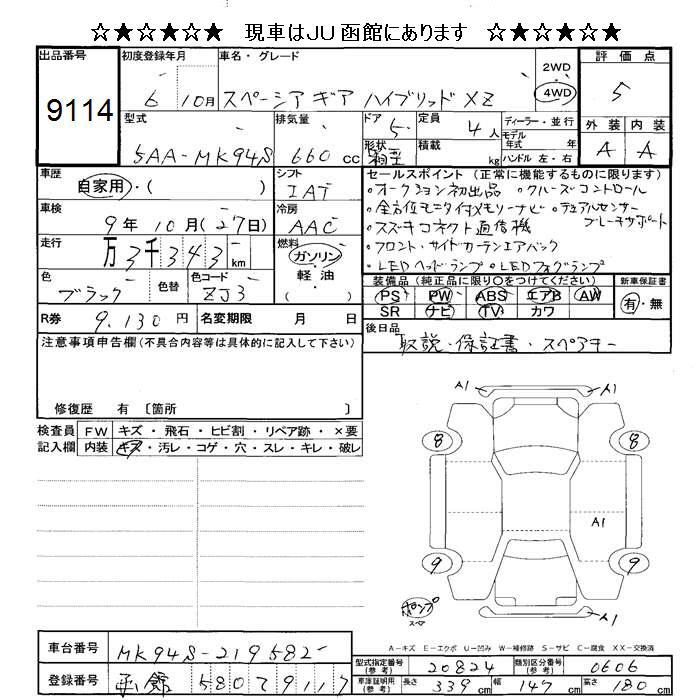 ☆★☆★☆★ 現車はJU函館にあります ☆★☆★☆★
出品番号 初度登録年月 車名・グレード 2WD 評価点
9114 6 10月 スペーシア ギア ハイブリッド XZ 4WD 5
型式 排気量 ドア 5 定員 4人 ディーラー・並行 外装 内装
5AA-MK94S 660cc 形状 箱型 積載 kg モデル年式 年 ハンドル 左・右 A A
車歴 シフト セールスポイント(正常に機能するものに限ります)
自家用・( ) IAT ・オークション初出品 ・クルーズコントロール
車検 冷房 ・全方位モニタ付メモリーナビ ・デュアルセンサー
9年10月(27日) AAC ・スズキコネクト通信機 ブレーキサポート
走行 万3千343km 燃料 ガソリン・軽油 ( ) ・フロント・サイドカーテンエアバック
・LEDヘッドランプ ・LEDフォグランプ
色 色替 色コード 装備品(純正品に限り○をつけてください) 新車保証書
ブラック ZJ3 PS PW ABS エアB AW 有・無
SR ナビ TV カワ
R券 9,130円 名変期限 月 日
後日品
取説・保証書・スペアキー
注意事項申告欄(不具合内容等は具体的に記入して下さい)
修復歴 有 〔箇所 〕
検査員記入欄 FW キズ・飛石・ヒビ割・リペア跡・×要
内装 キズ・汚レ・コゲ・穴・スレ・キレ・破レ
A1 A1
8 8
A1
9 9
ポンプ
スペア A1
A-キズ E-エクボ U-凹み W-補修跡 S-サビ C-腐食 XX-交換済
車台番号 MK94S-219582
登録番号 函館 580 て 9117
型式指定番号(参考) 20824 類別区分番号(参考) 0606
車庫証明用(参考) 長さ 339cm 幅 147cm 高さ 180cm